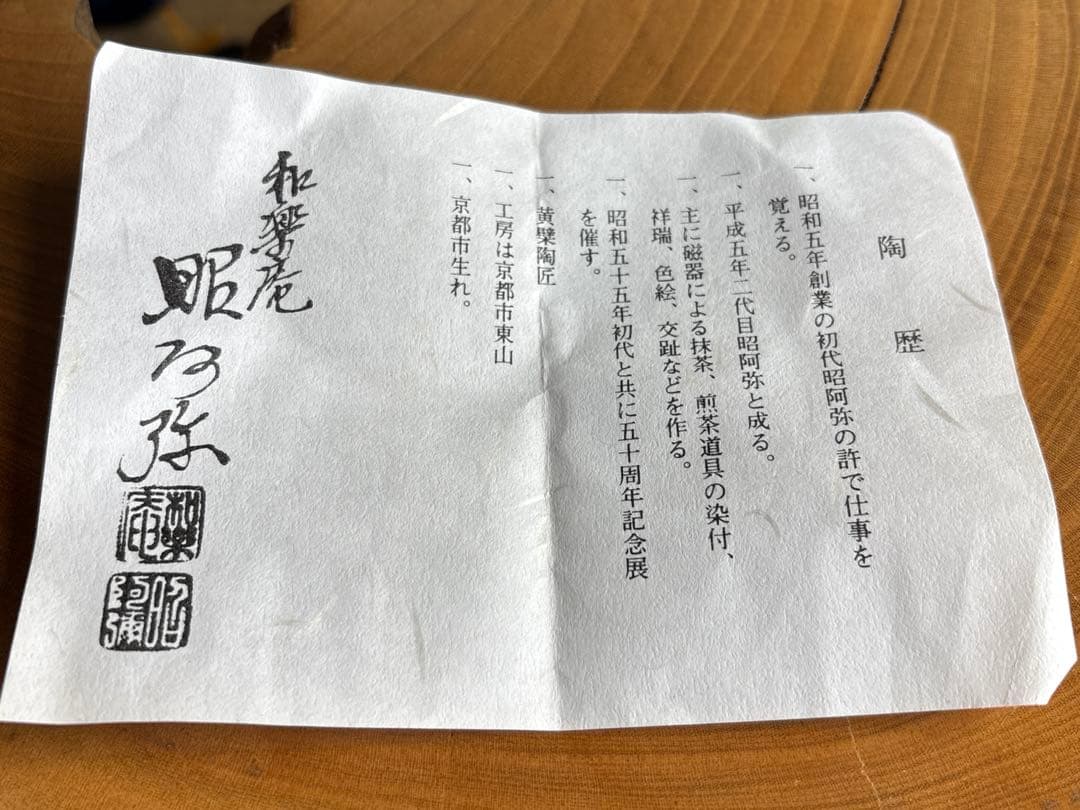 陶歴
一、昭和五年創業の初代昭阿弥の許で仕事を
覚える。
一、平成五年二代目昭阿弥と成る。
一、主に磁器による抹茶、煎茶道具の染付、
祥瑞、色絵、交趾などを作る。
一、昭和五十五年初代と共に五十周年記念展
を催す。
一、黄檗陶匠
一、工房は京都市東山
一、京都市生れ。
和樂庵
昭阿弥
和樂庵
昭阿彌